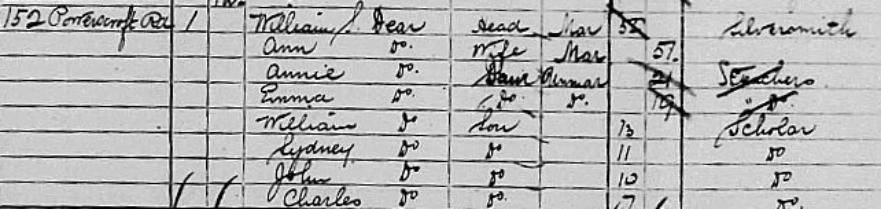 152 Powerscroft Rd 1 William S. Dear Head Mar 52 Silversmith
Ann do. Wife Mar 51.
Annie do. Daur Unmar 21 Teachers
Emma do. do. do. 19 " do.
William do Son 13 Scholar
Sydney do do 11 do
John do do 10 do
Charles do do. 7 do.